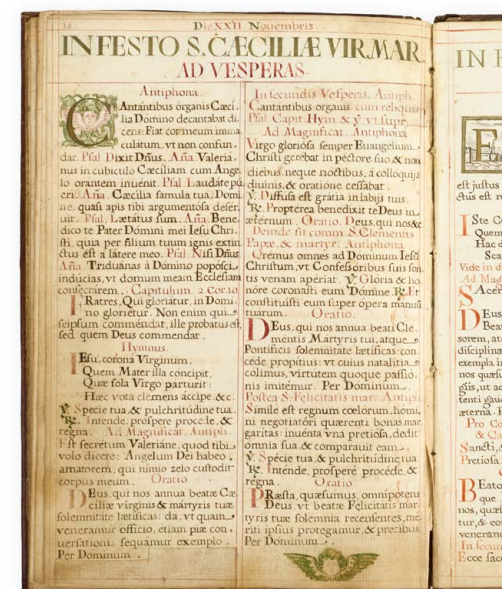 Die XXII. Novembris.
IN FESTO S. CÆCILIÆ VIR. MAR.
AD VESPERAS.
Antiphona
CAntántibus órganis Cæci-
lia Dómino decantabat di-
cens: Fiat cor meum imma-
culatum, vt non confun-
dar. Psal Dixit Dñus. Aña Valeria-
nus in cubículo Cæciliam cum Ange-
lo orantem invenit. Psal Laudáte pú
eri. Aña. Cæcília famula tua, Domi-
ne, quasi apis tibi argumentósa deser-
uit. Psal. Lætátus sum. Aña. Bene-
díco te Pater Dómini mei Iesu Chri-
sti, quia per fílium tuum ignis extin
ctus est a látere meo. Psal Nisi Dñus
Aña. Triduánas à Dómino popósci
indúcias, vt domum meam Ecclésiam
consecrárem. Capitulum. 2 Cor 10
FRatres, Qui gloriátur, in Domi-
no gloriétur. Non enim qui
seípsum comméndat, ille probátus est,
sed quem Deus comméndat.
Hymnus.
IEsu, coróna Vírginum.
Quem Mater illa cóncipit,
Quæ sola Virgo párturit:
Hæc vota clemens áccipe. &c.
℣. Spécie tua, & pulchritúdine tua.
℟. Inténde, próspere procéde, &
regna. Ad Magnificat. Antiph.
Est secrétum Valeriáne, quod tibi
volo dícere: Angelum Dei hábeo
amatórem, qui nímio zelo custódit
corpus meum. Oratio
DEus, qui nos ánnua beátæ Cæ
cíliæ vírginis & mártyris tuæ
solemnitáte lætíficas: da, vt quam
venerámur offício, étiam piæ con-
uersatiónis sequámur exémplo.
Per Dóminum.
In secundis Vesperis. Antiph.
Cantantibus organis cum reliquis
Psal Capit. Hym. & ℣. vt supr.
Ad Magnificat. Antiphona
Virgo gloriósa semper Euangélium
Christi gerébat in péctore suo & non
diébus, neque nóctibus, à collóquijs
diuínis, & oratióne cessábat.
℣. Diffúsa est grátia in lábijs tuis.
℟. Proptérea benedíxit te Deus in
ætérnum. Oratio. Deus, qui nos &c
Deinde fit comm. S. Clementis
Papæ, & martyr. Antiphona
Orémus omnes ad Dóminum Iesum
Christum, vt Confessóribus suis fon
tis venam apériat. ℣. Glória & ho
nóre coronásti eum Dómine. ℟. Et
constituísti eum super ópera mánuum
tuárum. Oratio.
DEus, qui nos ánnua beáti Cle
mentis Mártyris tui, atque
Pontíficis solemnitáte lætíficas: con
céde propítius; vt cuius natalítia
cólimus, virtútem quoque passió
nis imitémur. Per Dóminum
Postea S. Felicitatis mar. Antiph
Símile est regnum cælórum, hómi
ni negotiatóri quærénti bonas mar
garítas: inuénta vna pretiósa, dedit
ómnia sua, & comparáuit eam.
℣. Spécie tua, & pulchritúdine tua
℟. Inténde, próspere procéde, &
regna. Oratio.
PRæsta, quæsumus, omnípotens
Deus, vt beátæ Felicitátis már-
tyris tuæ solemnia recenséntes, mé
ritis ipsíus protegámur, & précibus
Per Dóminum.
IN F
est justus
ctus est r
ISte Co
Quem
Hac d
Sca
Ad Ma
DEus
Beat
sorem, at
disciplína
exémpla i
nos quæsu
tenti gau
ætérna. P
Pro Co
& Ca
Sancti, &
Pretiósa
BEáto
que
nos, quæ
tur, & co
veneránd
In secun
Ecce sac